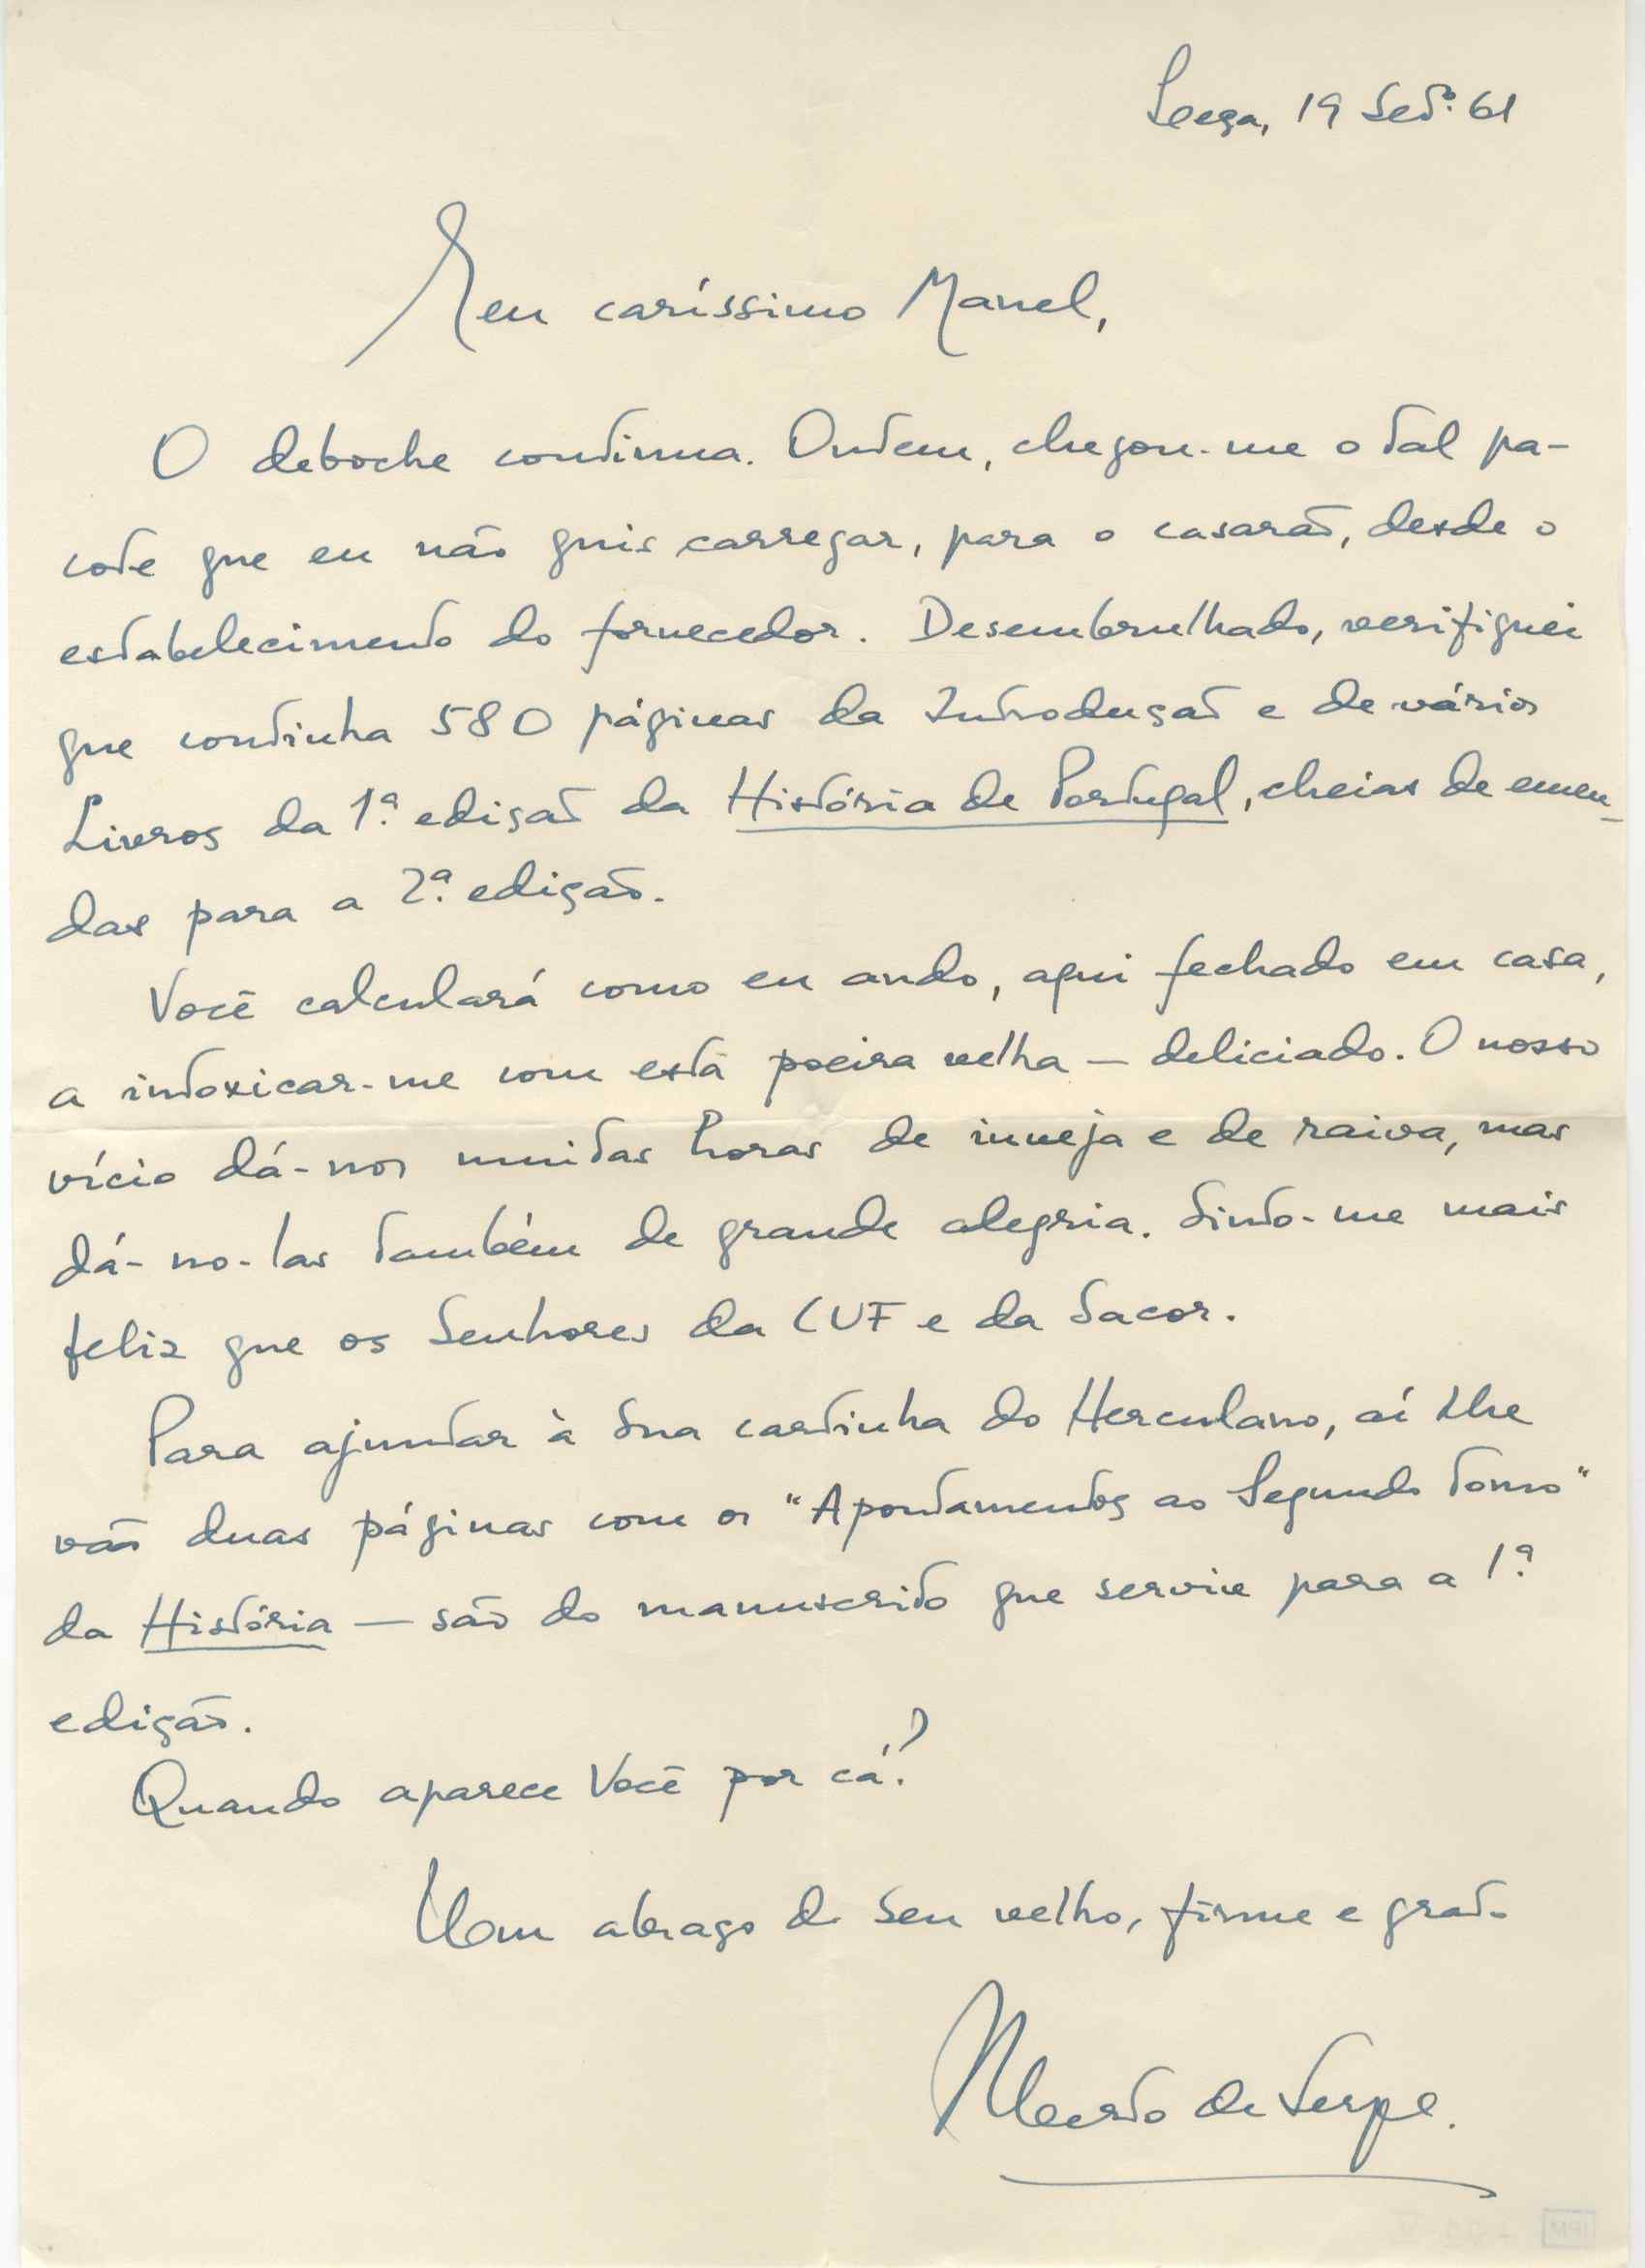 Leça, 19 Set.º 61
Meu caríssimo Manel,
O deboche continua. Ontem, chegou-me o tal pa-
cote que eu não quis carregar, para o casarão, desde o
estabelecimento do fornecedor. Desembrulhado, verifiquei
que continha 580 páginas da Introdução e de vários
Livros da 1.ª edição da História de Portugal, cheias de emen-
das para a 2.ª edição.
Você calculará como eu ando, aqui fechado em casa,
a intoxicar-me com esta poeira velha — deliciado. O nosso
vício dá-nos muitas horas de inveja e de raiva, mas
dá-no-las também de grande alegria. Sinto-me mais
feliz que os Senhores da CUF e da Sacor.
Para ajuntar à Sua cartinha do Herculano, aí Lhe
vão duas páginas com os "Apontamentos ao Segundo Tomo"
da História — são do manuscrito que serviu para a 1.ª
edição.
Quando aparece Você por cá?
Um abraço do Seu velho, firme e grato
Alberto de Serpa.